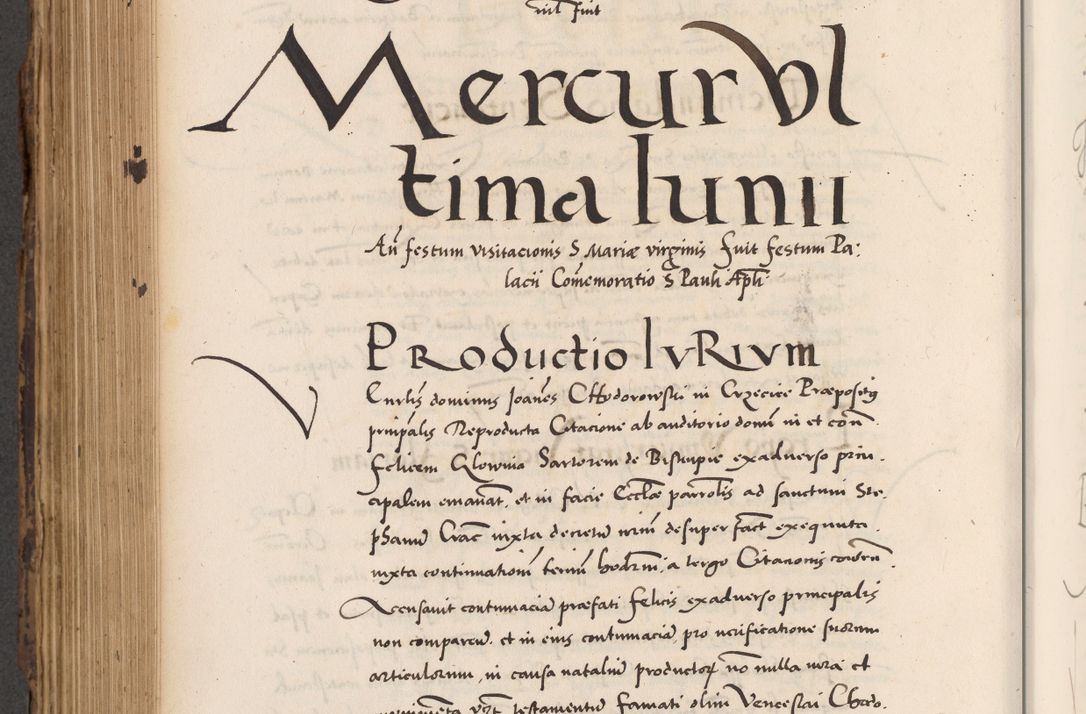 nil fuit
Mercur Vl
tima Iunii
Añ festum visitacionis S Mariæ virginis fuit festum Pa:
lacii Com̃emoratio S Pauli Apl̃i
Productio Ivrivm
dominus Joañes Chodorowski in Crzecice Præpositus
prinp̃alis Reproducta Citacione ab auditorio domũ in et coñ
felicem Glownia Sartorem de Biskupie exadverso prin.
cipalem emanat. et in facie Eccl̃æ parro͂lis ad sanctum Ste.
phanũ Crac̃ iuxta decretũ desuper fact̃ exequuta.
iuxta continuationẽ termĩ hodiernĩ, a tergo Citacionis
Accusavit contumaciã præfati felicis exadverso principalis
non comparen̄. et in eius contumaciã, pro verificatione suorum
articulorum, in causa nataliũ productor̃ no͂nulla iura et
munimenta vz̃t testamentũ famati olim Venceslai Chodo.